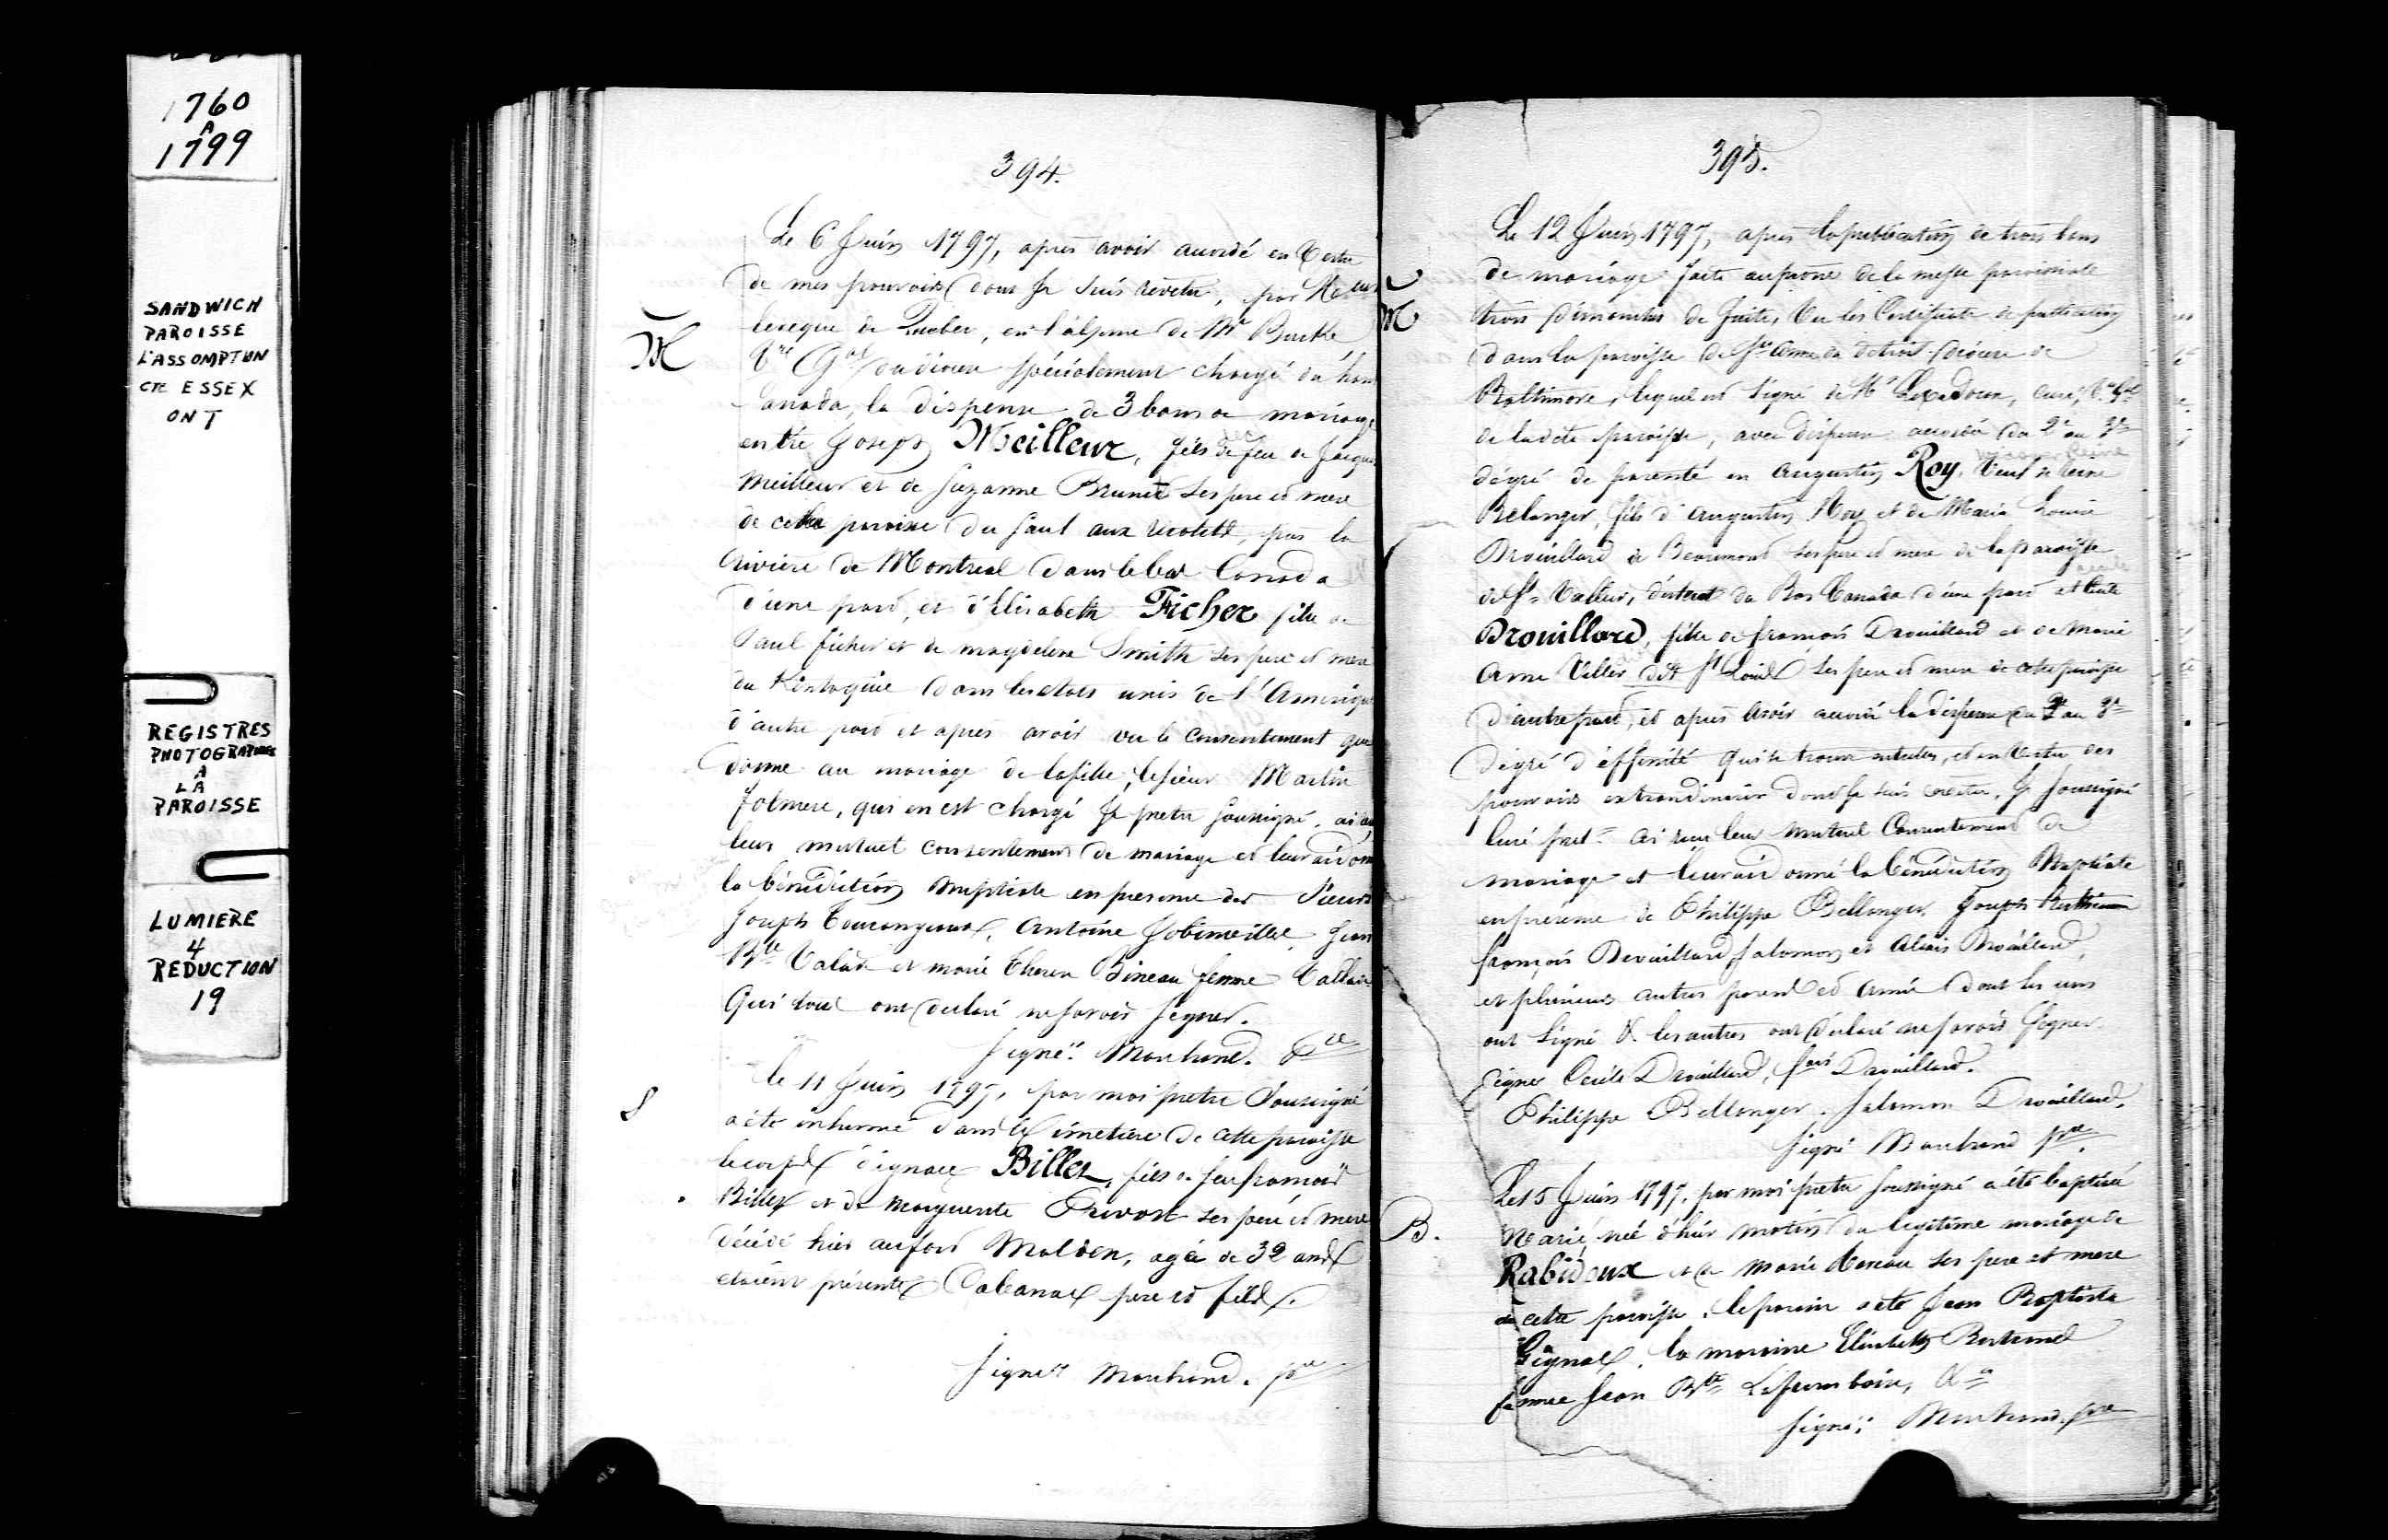 1760
A
1799
SANDWICH
PAROISSE
L'ASSOMPTION
CTE ESSEX
ONT
REGISTRES
PHOTOGRAPHIES
A
LA
PAROISSE
LUMIERE
4
REDUCTION
19
394.
Le 6 Juin 1797, apres avoir accordé en Vertu
de mes pouvoirs dont Je suis revetu, par
leveque de Quebec, en l'absence de Mr Burke
Vre Gal du diocese spécialement chargé du haut
Canada, la dispense de 3 bans de mariage
M
entre Joseph Meilleur, fils de feu de Jacques
Meilleur et de Suzanne Brunet ses pere et mere
de cette paroisse du Saul aux recolets, pres la
riviere de Montreal dans le bas Canada
d'une part, et d'Elisabeth Ficher fille de
Paul ficher et de magdelene Smith ses pere et mere
du Kentoquie dans les etats unis de l'Amerique
d'autre part et apres avoir vu le consentement que
donne au mariage de la fille, le sieur Martin
folmere, qui en est chargé Je pretre soussigné ai
leur mutuel consentement de mariage et leur ai donné
la bénédiction nuptiale en presence des Sieurs
Joseph Tourangeaux, Antoine Jobinville, Jean
Bte Valade et marie therese Bineau femme
Qui tous ont declaré ne savoir signer.
Signé" Marchand. Ptre
S
le 11 Juin 1797, par moi pretre Soussigné
a été inhumé dans le cimetiere de cette paroisse
le corps d'ignace Billet, fils de feu francois
Billet et de Marguerite Prevost ses pere et mere
décédé hier au fort Malden, agé de 32 ans
etoient présents Cabana pere et fils.
Signé" Marchand. ptre
395.
Le 12 Juin 1797, apres la publication de trois bans
de mariage faite au prone de la messe paroissiale
M
trois dimanches de suite, Vu les Certificats de publication
dans la paroisse de Ste Anne du detroit diocese de
Baltimore, lequel est signé de Mr Levadoux, curé, V. Gal
de ladite paroisse, avec dispense accordée du 2e au 3e
dégré de parenté en Augustin Roy, Veuf de Reine
Belanger, fils d'Augustin Roy et de Marie Louise
Drouillard de Beaumont ses pere et mere de la paroisse
de St Vallier, district du Bas Canada d'une part et Cecile
Drouillard, fille de françois Drouillard et de Marie
Anne Viller dit St Louis ses pere et mere de cette paroisse
d'autre part, et apres avoir accordé la dispense du 2e au 3e
dégré d'affinité qui se trouve entre eux, et en Vertu des
pouvoirs extraordinaires dont Je suis revetu, Je soussigné
Curé ai recu leur mutuel Consentement de
mariage et leur ai donné la bénédiction Nuptiale
en presence de Philippe Bellanger, Joseph Berthiaume
françois Drouillard Salomon et Alexis Drouillard,
et plusieurs autres parents et amis dont les uns
ont Signé & les autres ont déclaré ne savoir Signer.
Signer Cecile Drouillard, fois Drouillard.
Philippe Bellanger. Salomon Drouillard.
Signé Marchand ptre.
B.
Le 15 Juin 1797, par moi pretre soussigné a été baptisé
Marie, neé d'hier matin du legitime mariage de
Rabidoux et de Marie ses pere et mere
de cette paroisse, le parain a été Jean Baptiste
Gignac, la maraine Elisabeth Bertrand
femme Jean Bte Lesperance, &c
Signé; Marchand. ptre